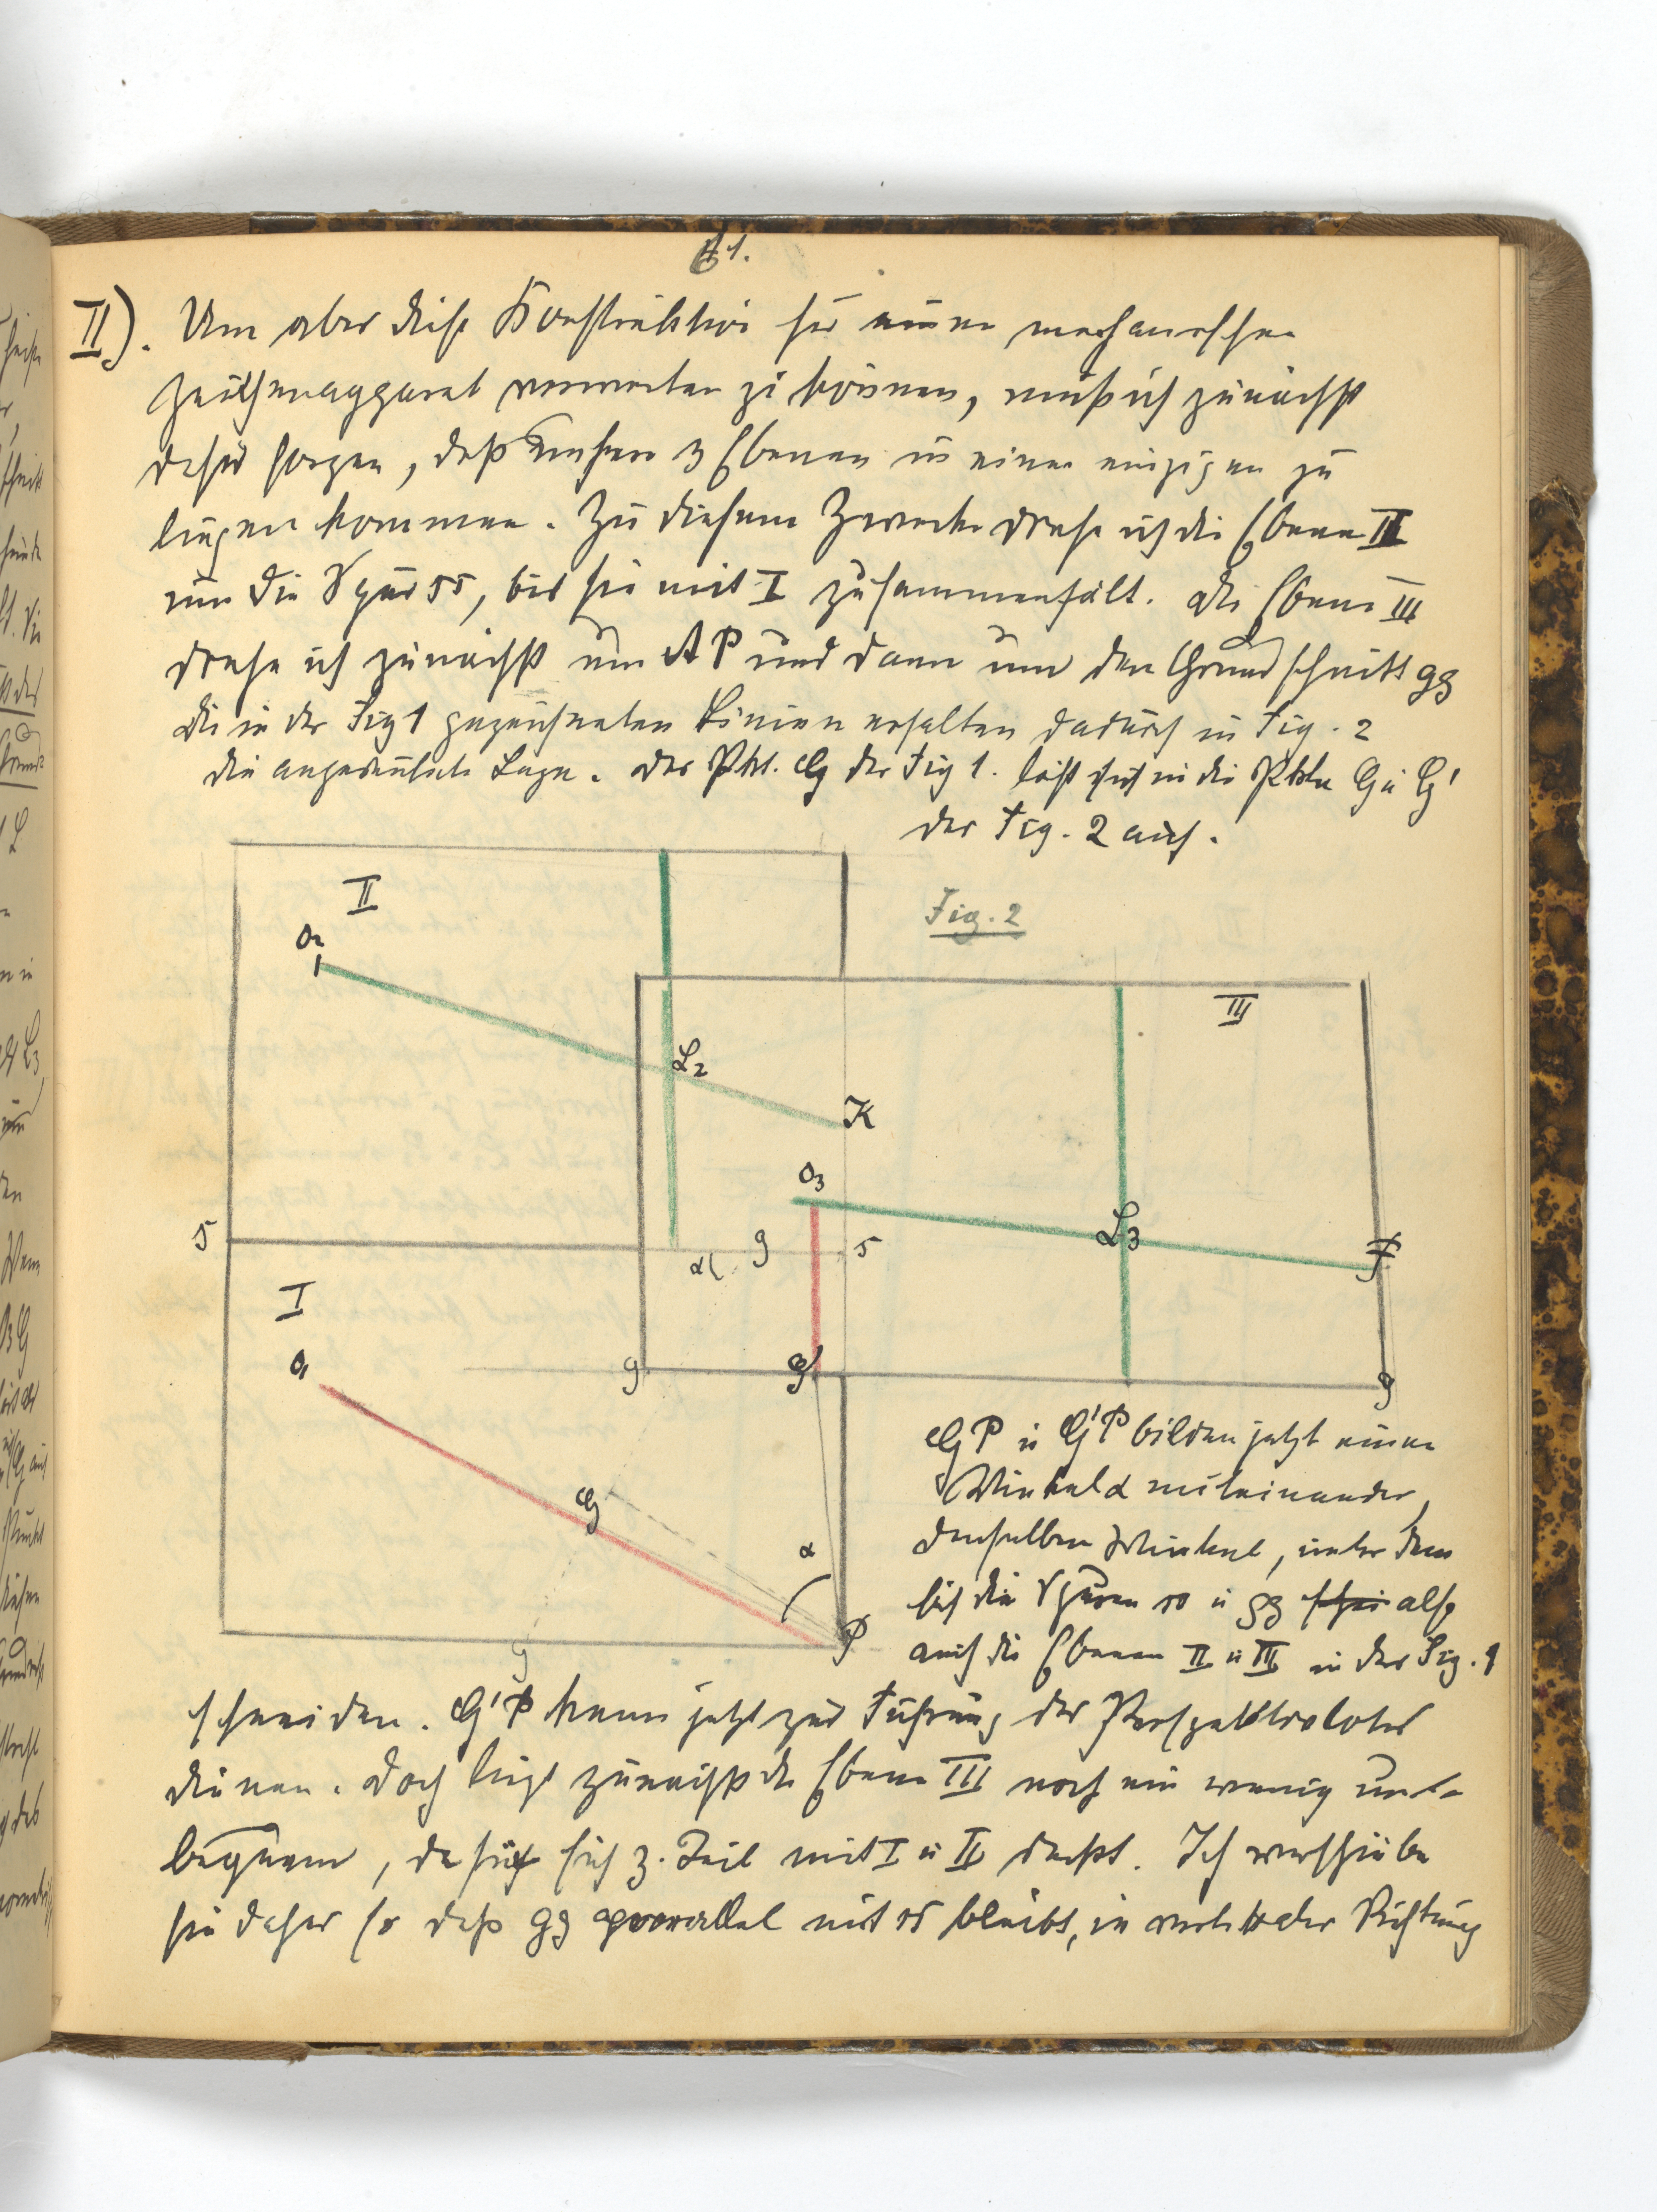 61.
II). Um aber diese Konstruktion für einen mechanischen
Zeichenapparat verwerten zu können, muß ich zunächst
dafür sorgen, daß unsere 3 Ebenen in einer einzigen zu
liegen kommen. Zu diesem Zwecke drehe ich die Ebene II
um die Spur ss, bis sie mit I zusammenfält. Die Ebene III
drehe ich zunächst um AP und dann um den Grundschnitt gg
Die in der Fig 1 gezeichneten Linien erhalten dadurch in Fig. 2
die angedeutete Lage. Der Pkt. G der Fig 1. löst sich in die Pkte G u G'
der Fig. 2 auf.
II
Fig. 2
O2
III
L2
K
O3
L3
F
s
g
s
α
I
O1
g
G'
g
GP u G'P bilden jetzt einen
Winkel α miteinander,
denselben Winkel, unter dem
sich die Spuren ss u gg also
auch die Ebenen II u III in der Fig. 1
G
α
P
g
schneiden. G'P kann jetzt zur Führung des Perspektivlotes
dienen. Doch liegt zunächst die Ebene III noch ein wenig un-
bequem, da sie sich z. Teil mit I u II deckt. Ich verschiebe
sie daher so daß gg parallel mit ss bleibt, in vertikaler Richtung